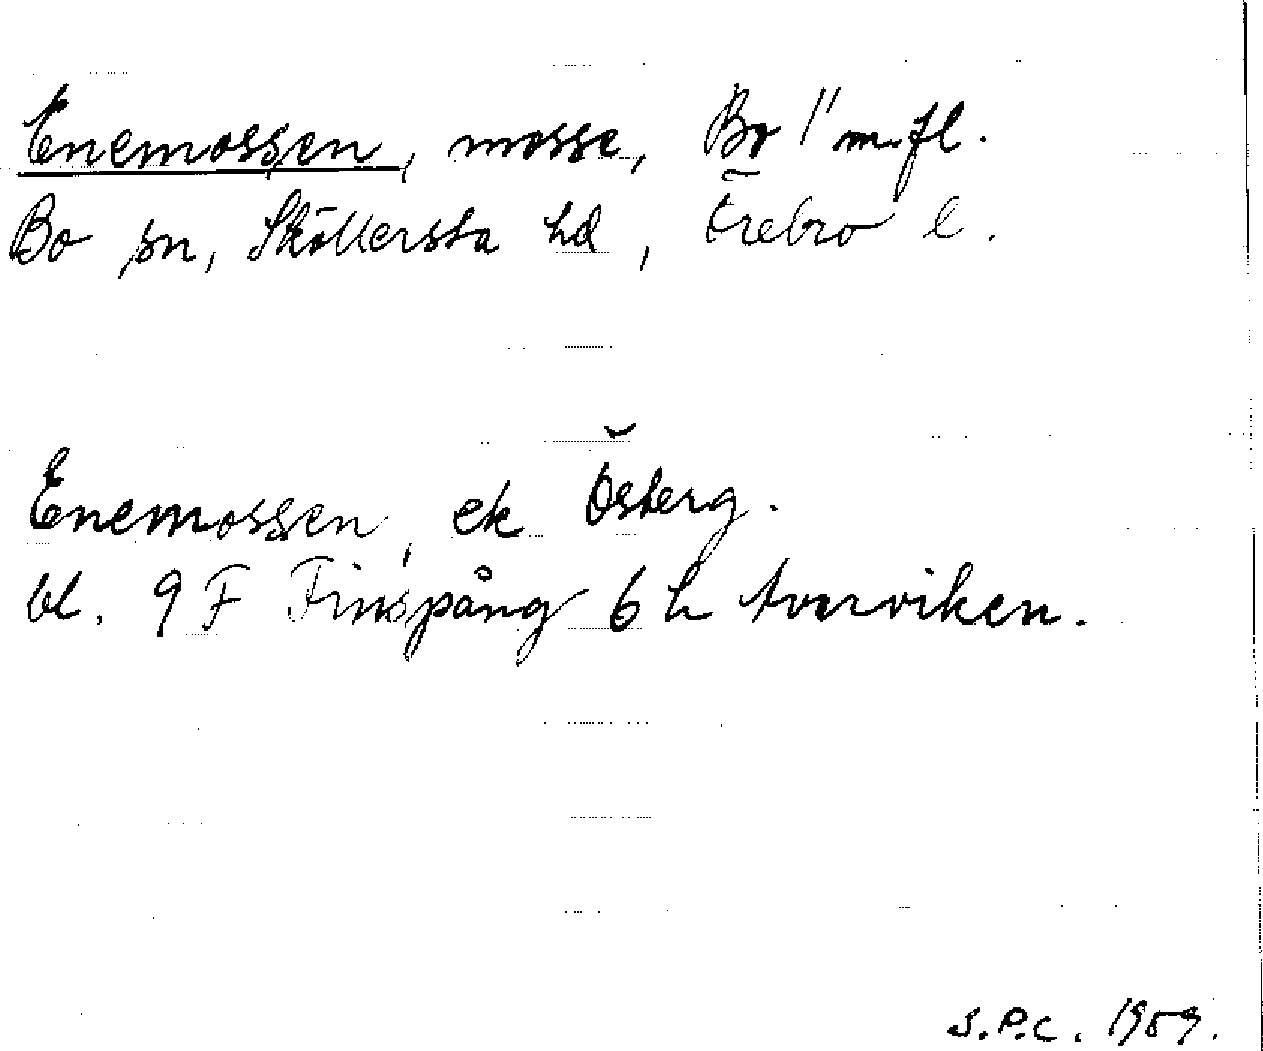 Enemossen, mosse, Bo 1" m.fl.
Bo sn, Sköllersta hd, Örebro l.
Enemossen, ek Österg.
bl. 9F Finspång 6h Averviken.
S.P.C. 1959.